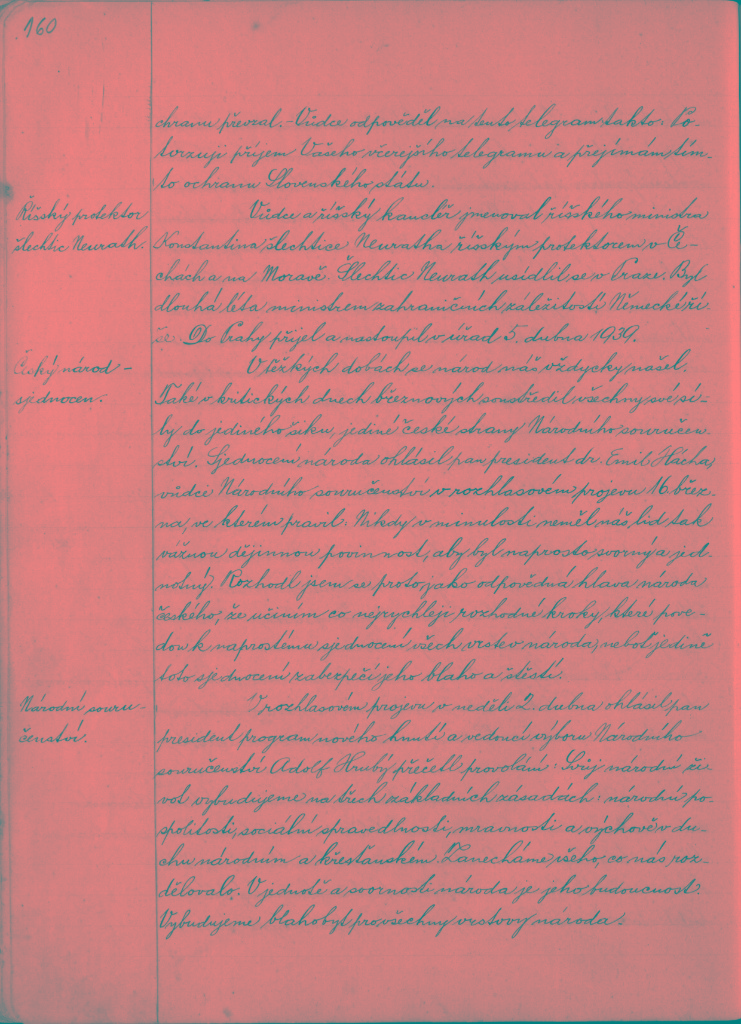 160
chranu převzal. - Vůdce odpověděl na tento telegram takto: Po-
tvrzuji příjem Vašeho včerejšího telegramu a přejímám tím-
to ochranu Slovenského státu.
Říšský protektor
šlechtic Neurath.
Vůdce a říšský kancléř jmenoval říšského ministra
Konstantina šlechtice Neuratha říšským protektorem v Če-
chách a na Moravě. Šlechtic Neurath usídlil se v Praze. Byl
dlouhá léta ministrem zahraničních záležitostí Německé ří-
še. Do Prahy přijel a nastoupil v úřad 5. dubna 1939.
Český národ -
sjednocen.
V těžkých dobách se národ náš vždycky našel.
Také v kritických dnech březnových soustředil všechny své sí-
ly do jediného šiku, jediné české strany Národního souručen-
ství. Sjednocení národa ohlásil pan president dr. Emil Hácha,
vůdce Národního souručenství v rozhlasovém projevu 16. břez-
na, ve kterém pravil: Nikdy v minulosti neměl náš lid tak
vážnou dějinnou povinnost, aby byl naprosto svorný a jed-
notný. Rozhodl jsem se proto, jako odpovědná hlava národa
českého, že učiním co nejrychleji rozhodné kroky, které pove-
dou k naprostému sjednocení všech vrstev národa, neboť jedině
toto sjednocení zabezpečí jeho blaho a štěstí.
Národní souru-
čenství.
V rozhlasovém projevu v neděli 2. dubna ohlásil pan
president program nového hnutí a vedoucí výboru Národního
souručenství Adolf Hrubý přečetl provolání: Svůj národní ži-
vot vybudujeme na třech základních zásadách: národní po-
spolitosti, sociální spravedlnosti, mravnosti a výchově v du-
chu národním a křesťanském. Zanecháme všeho, co nás roz-
dělovalo. V jednotě a svornosti národa je jeho budoucnost.
Vybudujeme blahobyt pro všechny vrstvy národa.